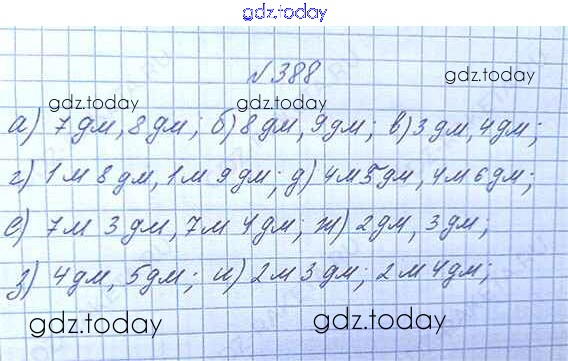 gdz.today
№388
gdz.today
gdz.today gdz.today
а) 7дм, 8дм; б) 8дм, 9дм; в) 3дм, 4дм;
г) 1м 8дм, 1м 9дм; д) 4м 5дм, 4м 6дм;
е) 7м 3дм, 7м 4дм; ж) 2дм, 3дм;
з) 4дм, 5дм; и) 2м 3дм; 2м 4дм;
gdz.today gdz.today